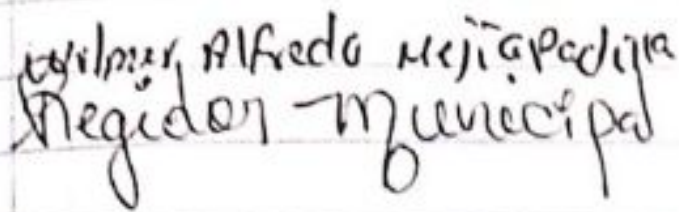 Wilmer Alfredo Mejia Padilla
Regidor Municipal